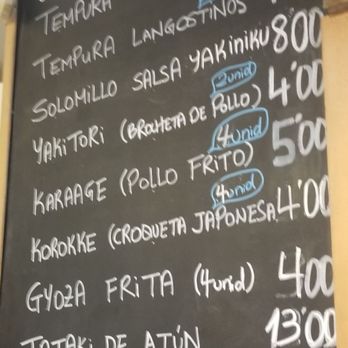 TEMPURA
TEMPURA LANGOSTINOS
SOLOMILLO SALSA YAKINIKU 8'00
2unid
YAKITORI (BROCHETA DE POLLO) 4'00
4unid
KARAAGE (POLLO FRITO) 5'00
4unid
KOROKKE (CROQUETA JAPONESA 4'00
GYOZA FRITA (4unid) 4'00
TATAKI DE ATÚN 13'00